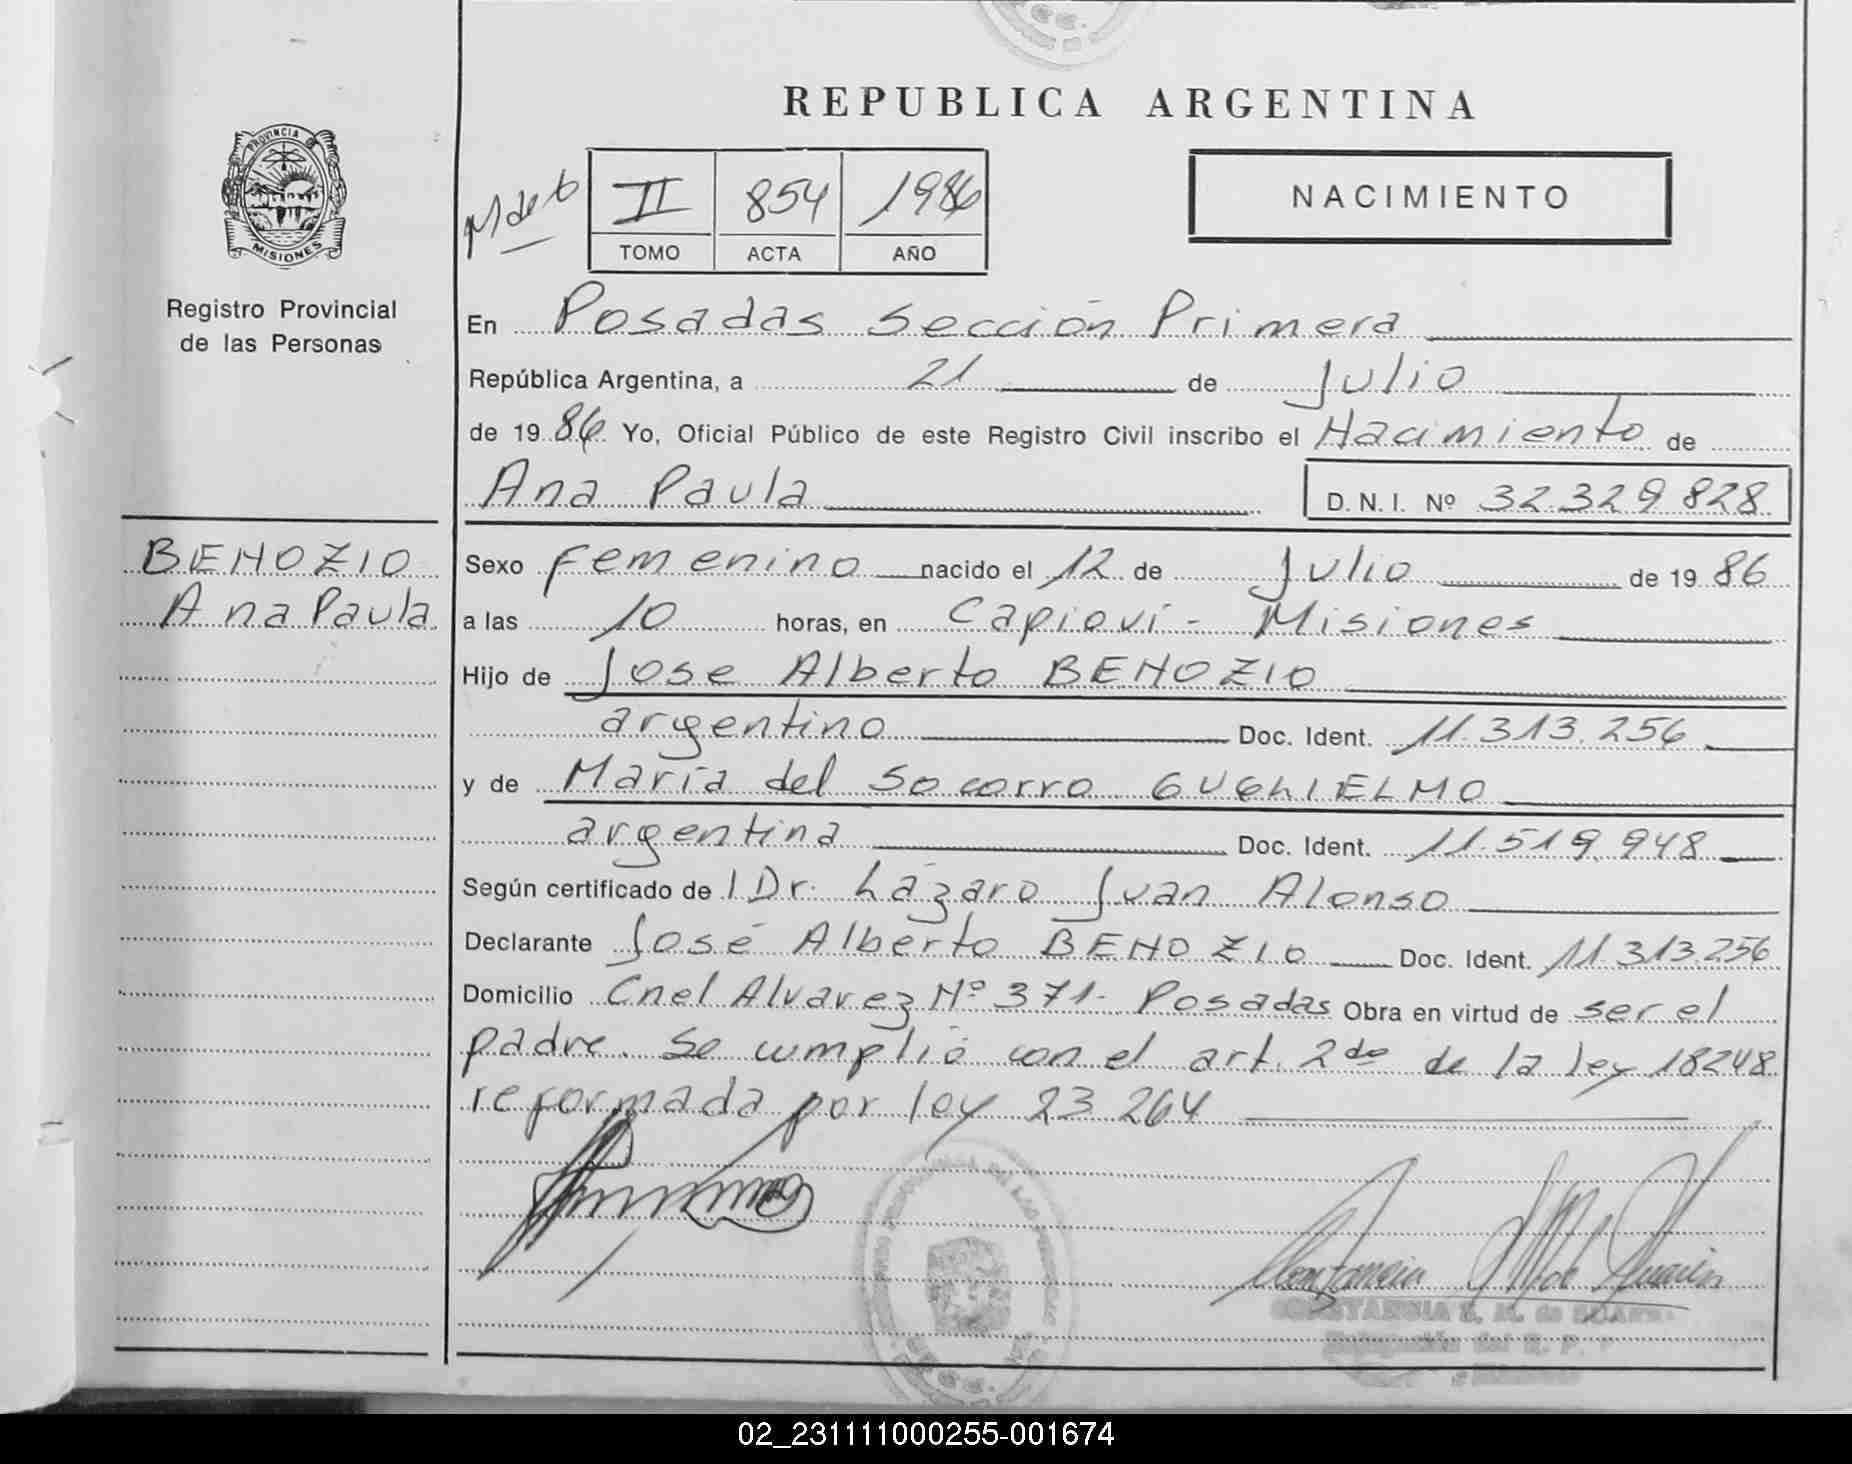 PROVINCIA DE
MISIONES
Registro Provincial
de las Personas
BENOZIO
Ana Paula
REPUBLICA ARGENTINA
II 854 1986
TOMO ACTA AÑO
NACIMIENTO
En Posadas Sección Primera
República Argentina, a 21 de Julio
de 1986 Yo, Oficial Público de este Registro Civil inscribo el Nacimiento de
Ana Paula D.N.I. Nº 32.329.828
Sexo femenino nacido el 12 de Julio de 1986
a las 10 horas, en Capioví - Misiones
Hijo de Jose Alberto BENOZIO
argentino Doc. Ident. 11.313.256
y de María del Socorro GUGLIELMO
argentina Doc. Ident. 11.519.948
Según certificado de l Dr. Lázaro Juan Alonso
Declarante José Alberto BENOZIO Doc. Ident. 11.313.256
Domicilio Cnel Alvarez Nº 371- Posadas Obra en virtud de ser el
padre. Se cumplió con el art. 2do de la ley 18248
reformada por ley 23264
02_231111000255-001674